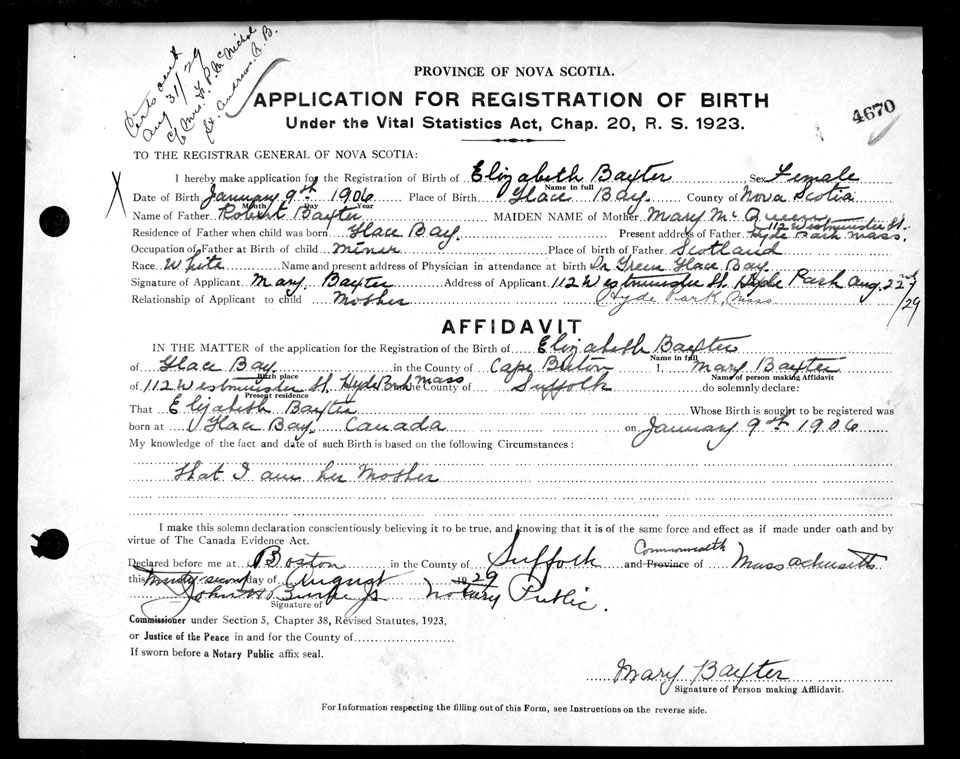 Certs sent
Aug 31/29
c/o Mrs. F. P. McNichol
St. Andrews. N. B.
PROVINCE OF NOVA SCOTIA.
APPLICATION FOR REGISTRATION OF BIRTH
4670
Under the Vital Statistics Act, Chap. 20, R. S. 1923.
TO THE REGISTRAR GENERAL OF NOVA SCOTIA:
X
I hereby make application for the Registration of Birth of Elizabeth Baxter Sex Female
Name in full
Date of Birth January 9th 1906 Place of Birth Glace Bay County of Nova Scotia
Month Day Year
Name of Father Robert Baxter MAIDEN NAME of Mother Mary McQueen
Residence of Father when child was born Glace Bay. Present address of Father 112 Westminster St. Hyde Park Mass.
Occupation of Father at Birth of child miner Place of birth of Father Scotland
Race White Name and present address of Physician in attendance at birth Dr Green Glace Bay
Signature of Applicant Mary Baxter Address of Applicant 112 Westminster St. Hyde Park Aug. 22nd /29
Relationship of Applicant to child Mother Hyde Park, Mass
AFFIDAVIT
IN THE MATTER of the application for the Registration of the Birth of Elizabeth Baxter
Name in full
of Glace Bay in the County of Cape Breton I, Mary Baxter
Birth place Name of person making Affidavit
of 112 Westminster St. Hyde Park Mass in the County of Suffolk do solemnly declare:
Present residence
That Elizabeth Baxter Whose Birth is sought to be registered was
born at Glace Bay Canada on January 9th 1906
My knowledge of the fact and date of such Birth is based on the following Circumstances:
that I am her Mother
I make this solemn declaration conscientiously believing it to be true, and knowing that it is of the same force and effect as if made under oath and by
virtue of The Canada Evidence Act.
Declared before me at Boston in the County of Suffolk and Province of Commonwealth Massachusetts
this Twenty second day of August 1929
John H Burke Jr Notary Public.
Signature of
Commissioner under Section 5, Chapter 38, Revised Statutes, 1923,
or Justice of the Peace in and for the County of
If sworn before a Notary Public affix seal.
Mary Baxter
Signature of Person making Affidavit.
For Information respecting the filling out of this Form, see Instructions on the reverse side.